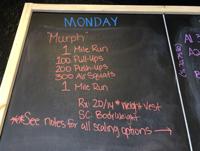 MONDAY
"Murph"
1 Mile Run
100 Pull-Ups
200 Push-ups
300 Air Squats
1 Mile Run
Rx: 20/14# Weight Vest
SC: Bodyweight
**See notes for all scaling options →